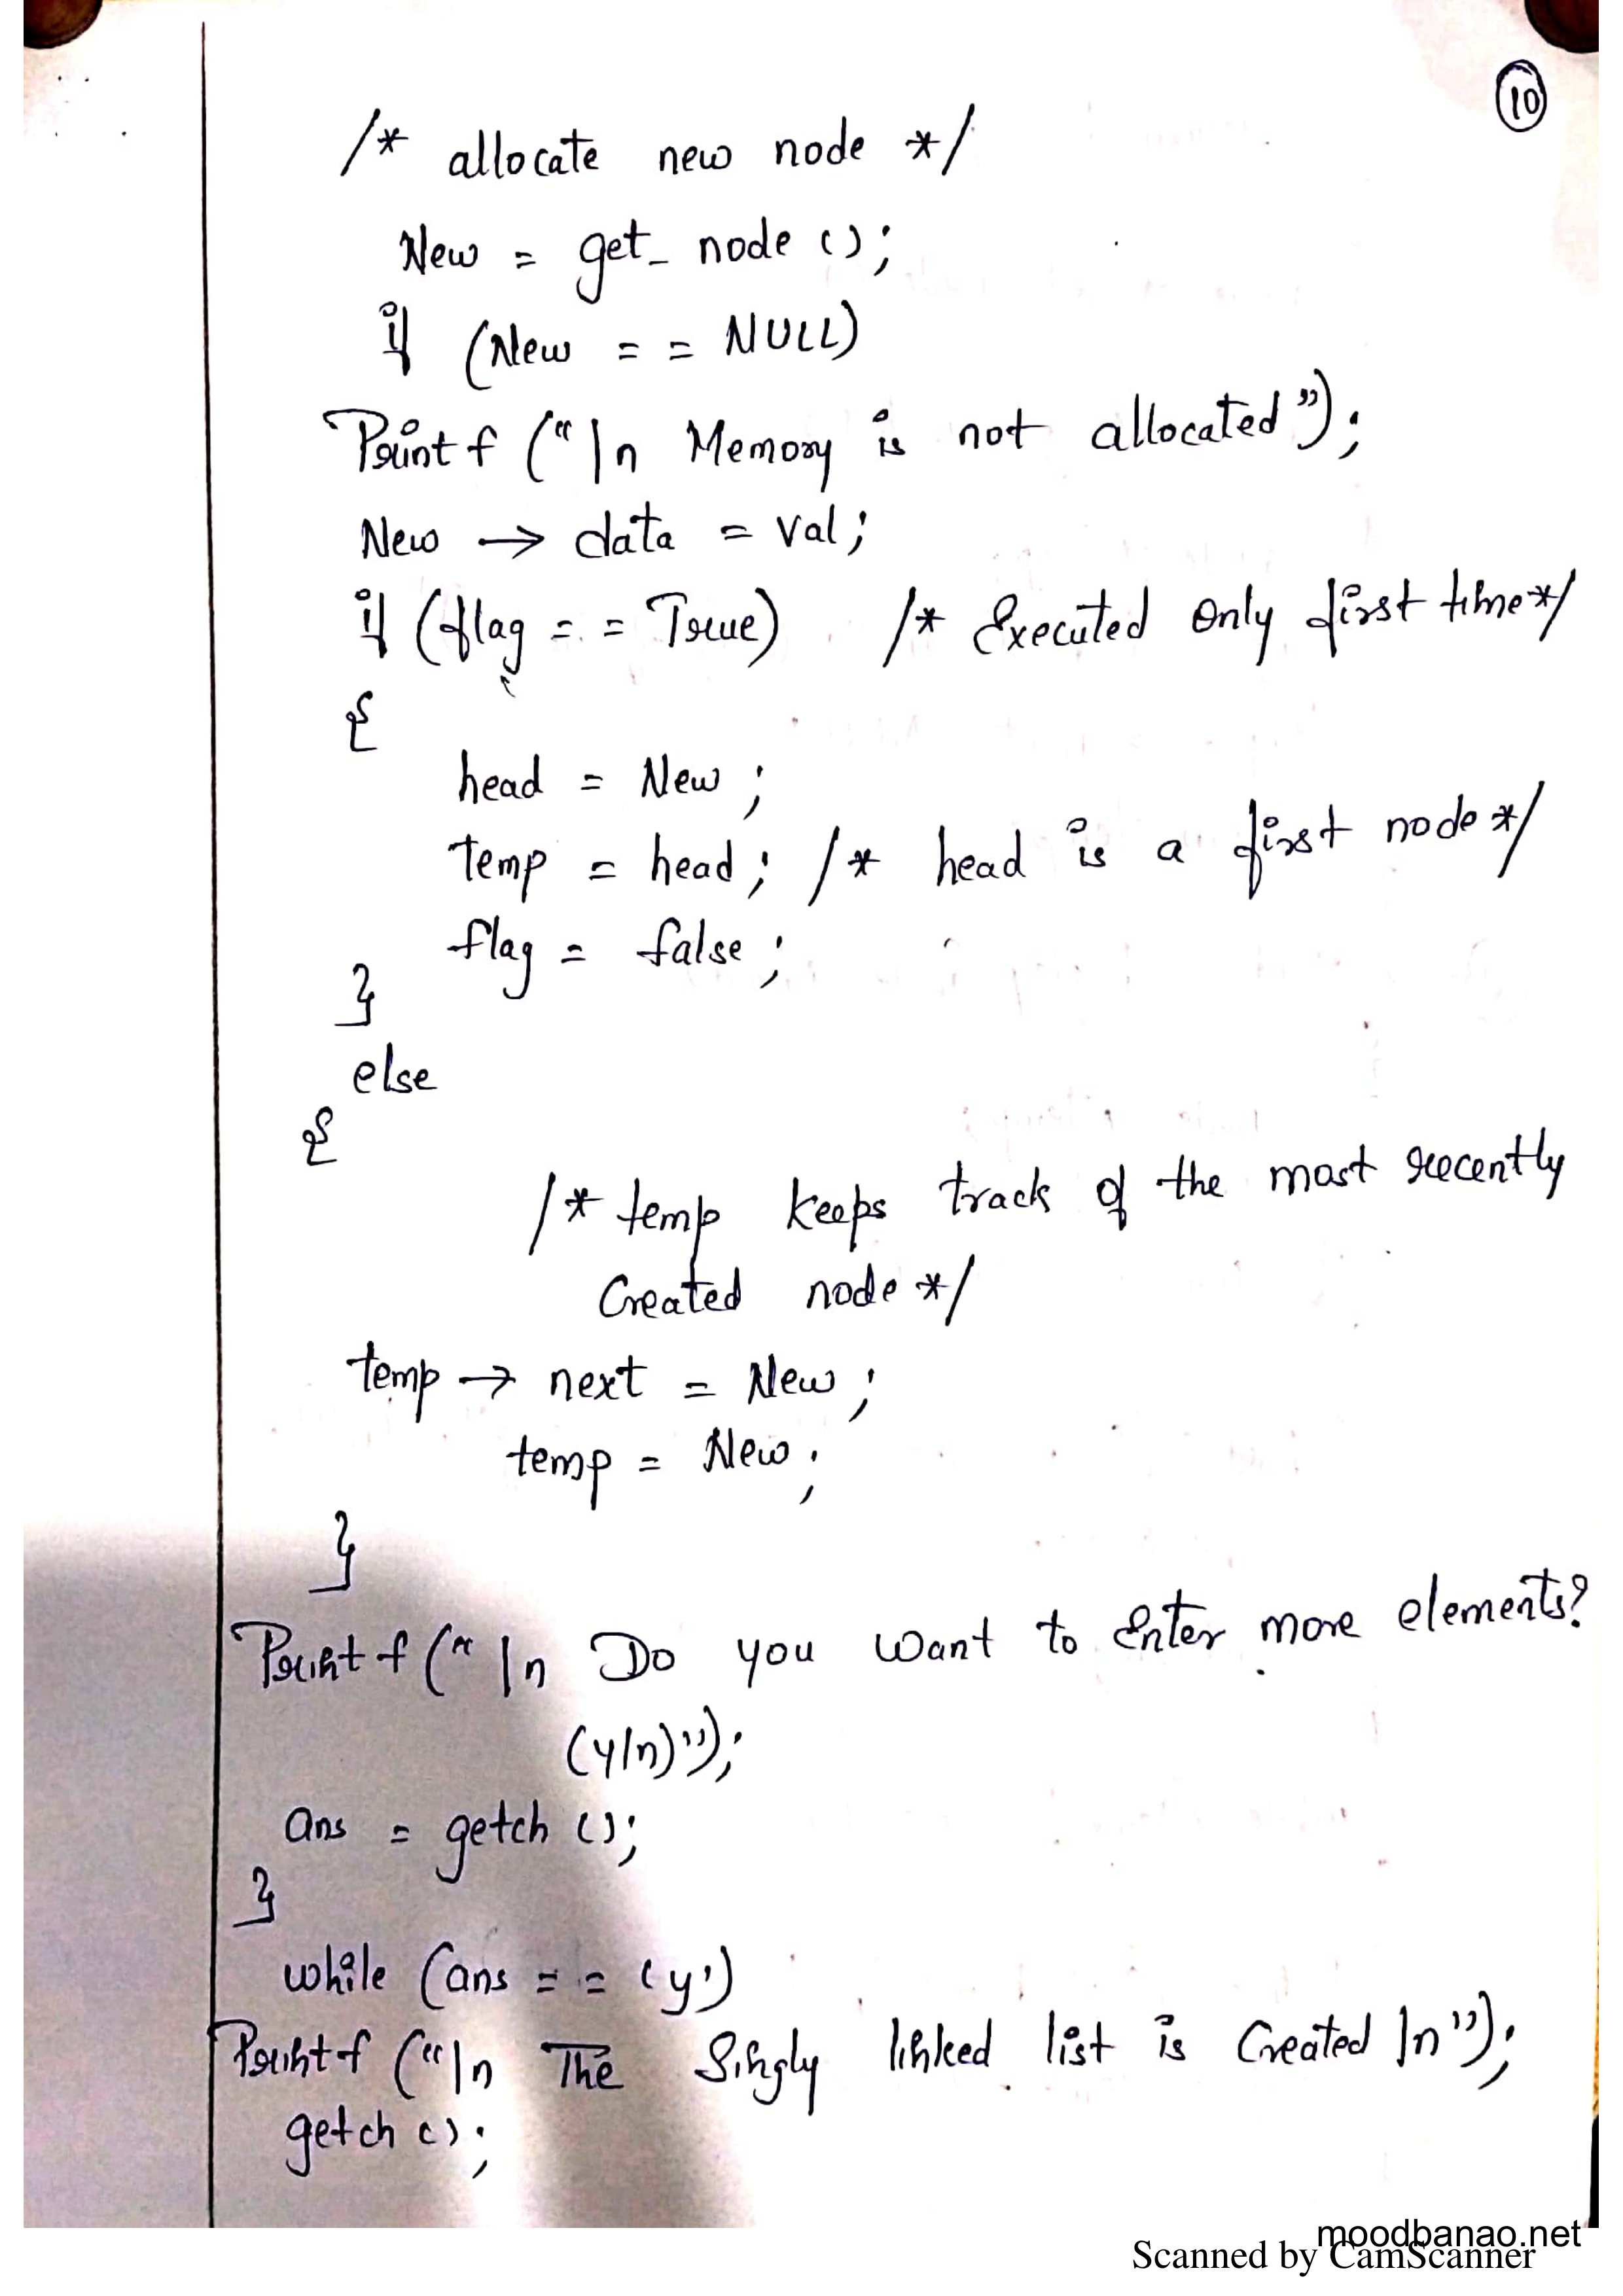 10
/* allocate new node */
New = get_node ();
if (New == NULL)
Printf ("\n Memory is not allocated");
New → data = val;
if (flag == True) /* Executed only first time */
{
head = New ;
temp = head ; /* head is a first node */
flag = false ;
}
else
{
/* temp keeps track of the most recently
Created node */
temp → next = New ;
temp = New ;
}
Printf (" \n Do you want to Enter more elements?
(y/n)");
ans = getch ();
}
while (ans == 'y')
Printf ("\n The Singly linked list is Created \n");
getch ();
moodbanao.net
Scanned by CamScanner